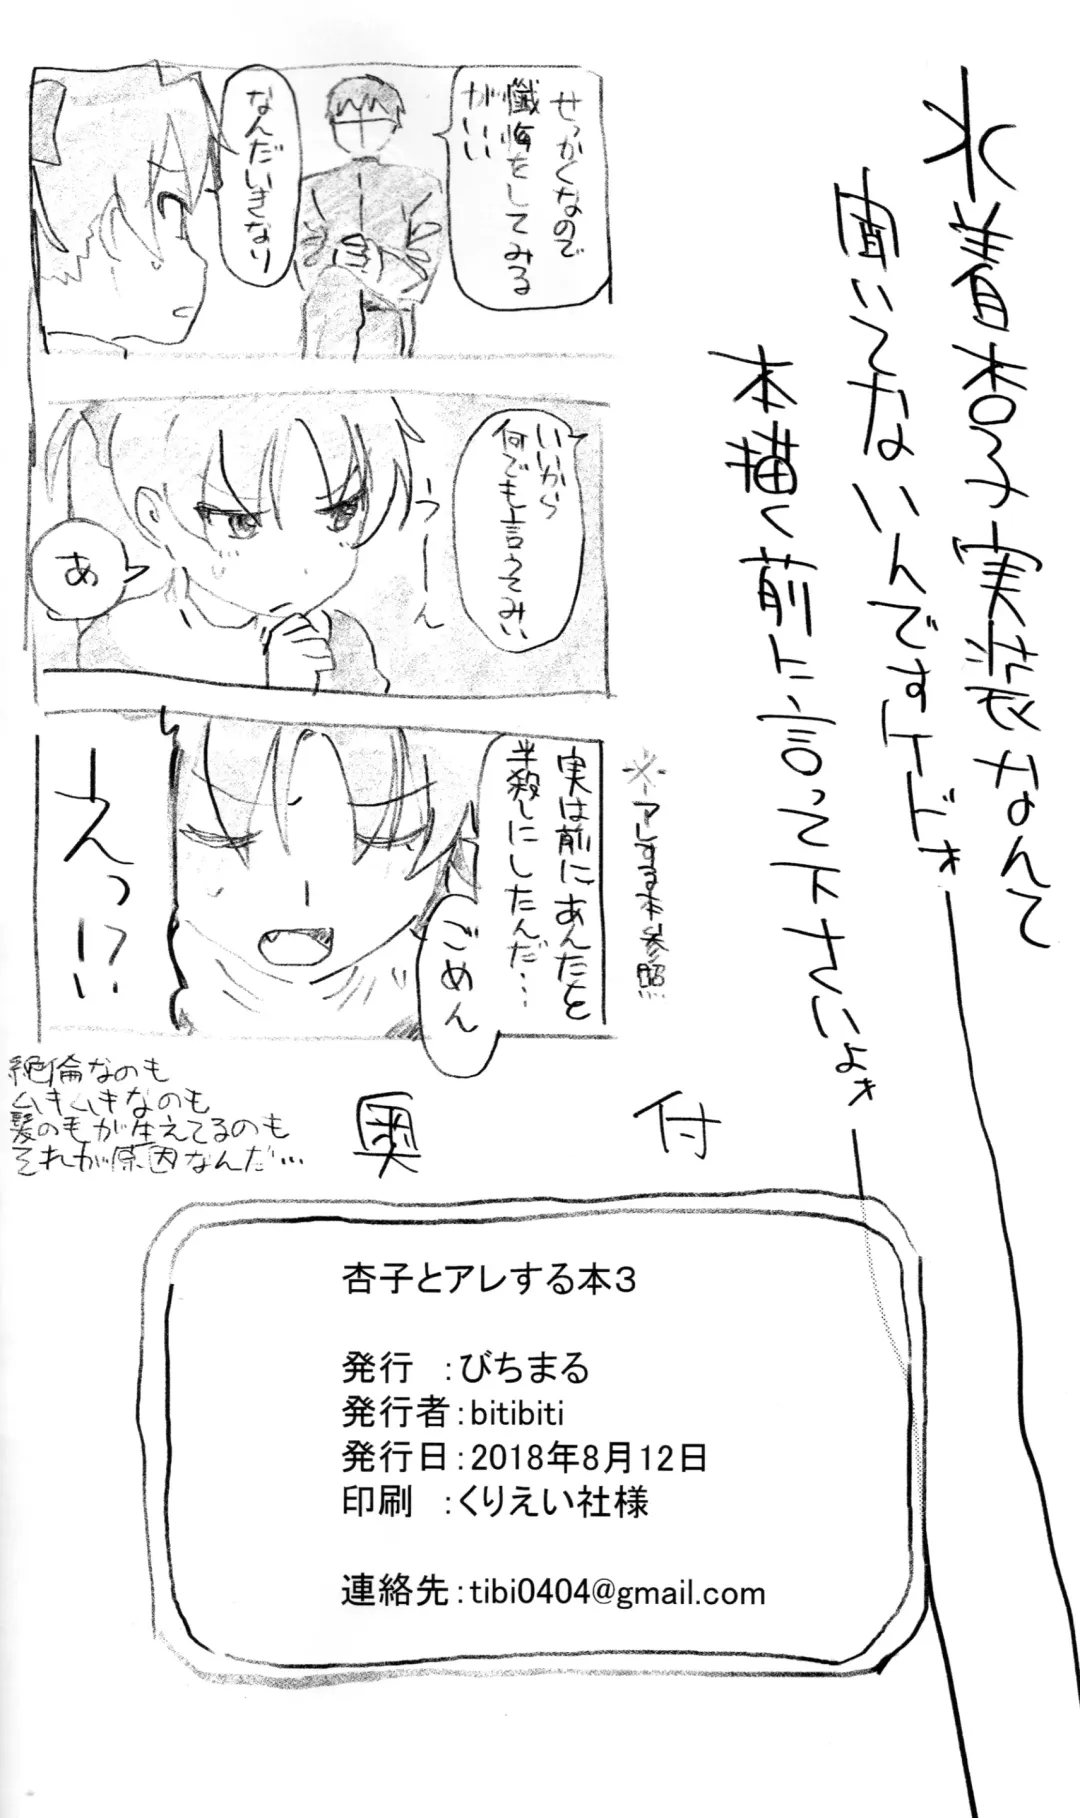 水着杏子実装なんて
聞いてないんですケドォ
本描く前に言って下さいよォ
せっかくなので
懺悔をしてみる
がいい
なんだいきなり
いいから
何でも言ってみい
うーーん
あ
※アレする本参照
実は前にあんたを
半殺しにしたんだ…
ごめん
えっ!?
絶倫なのも
ムキムキなのも
髪の毛が生えてるのも
それが原因なんだ…
奥付
杏子とアレする本3
発行　：びちまる
発行者：bitibiti
発行日：2018年8月12日
印刷　：くりえい社様
連絡先：tibi0404@gmail.com